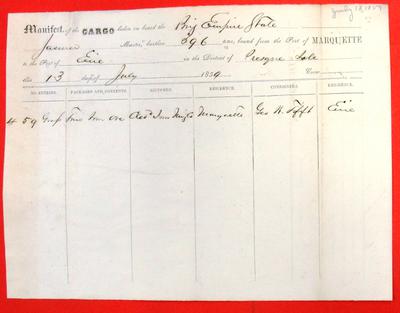 July 13, 1859
Manifest of the CARGO laden on board the Brig Empire State
Master, burthen 396 tons, bound from the Port of MARQUETTE
to the Port of Erie in the District of Presque Isle
this 13 day of July 1859
NO. ENTRIES. PACKAGES AND CONTENTS. SHIPPERS. RESIDENCE. CONSIGNEES. RESIDENCE.
459 Iron Ore Marquette Geo W. Tifft Erie